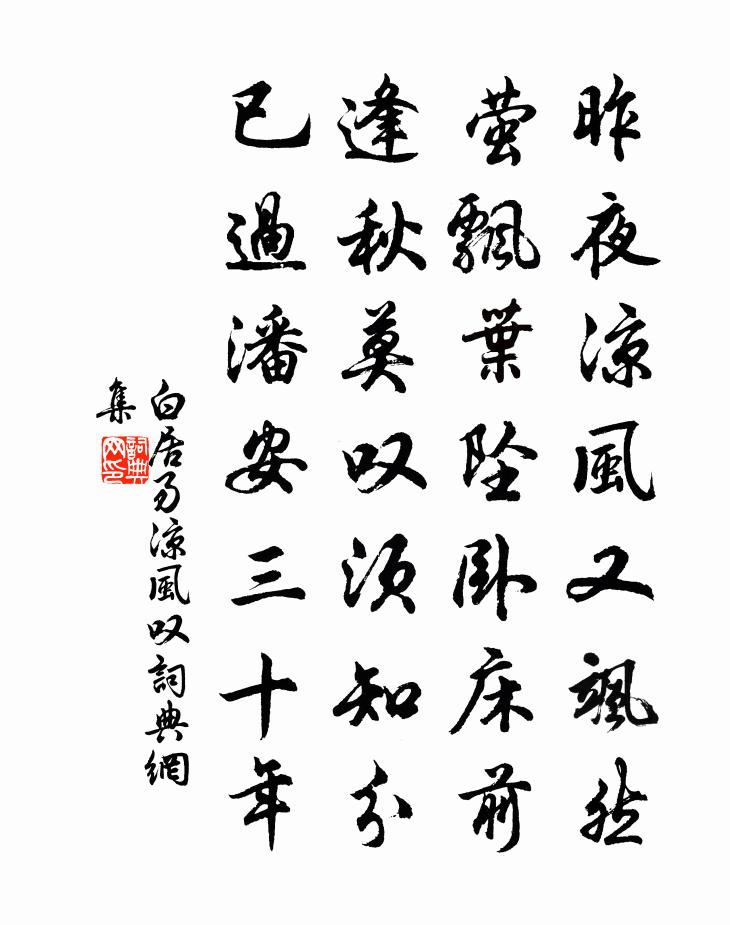 昨夜涼風又颯然
螢飄葉墜卧床前
逢秋莫叹須知分
已過潘安三十年
白居易涼風叹詞典網
集
詞典網印